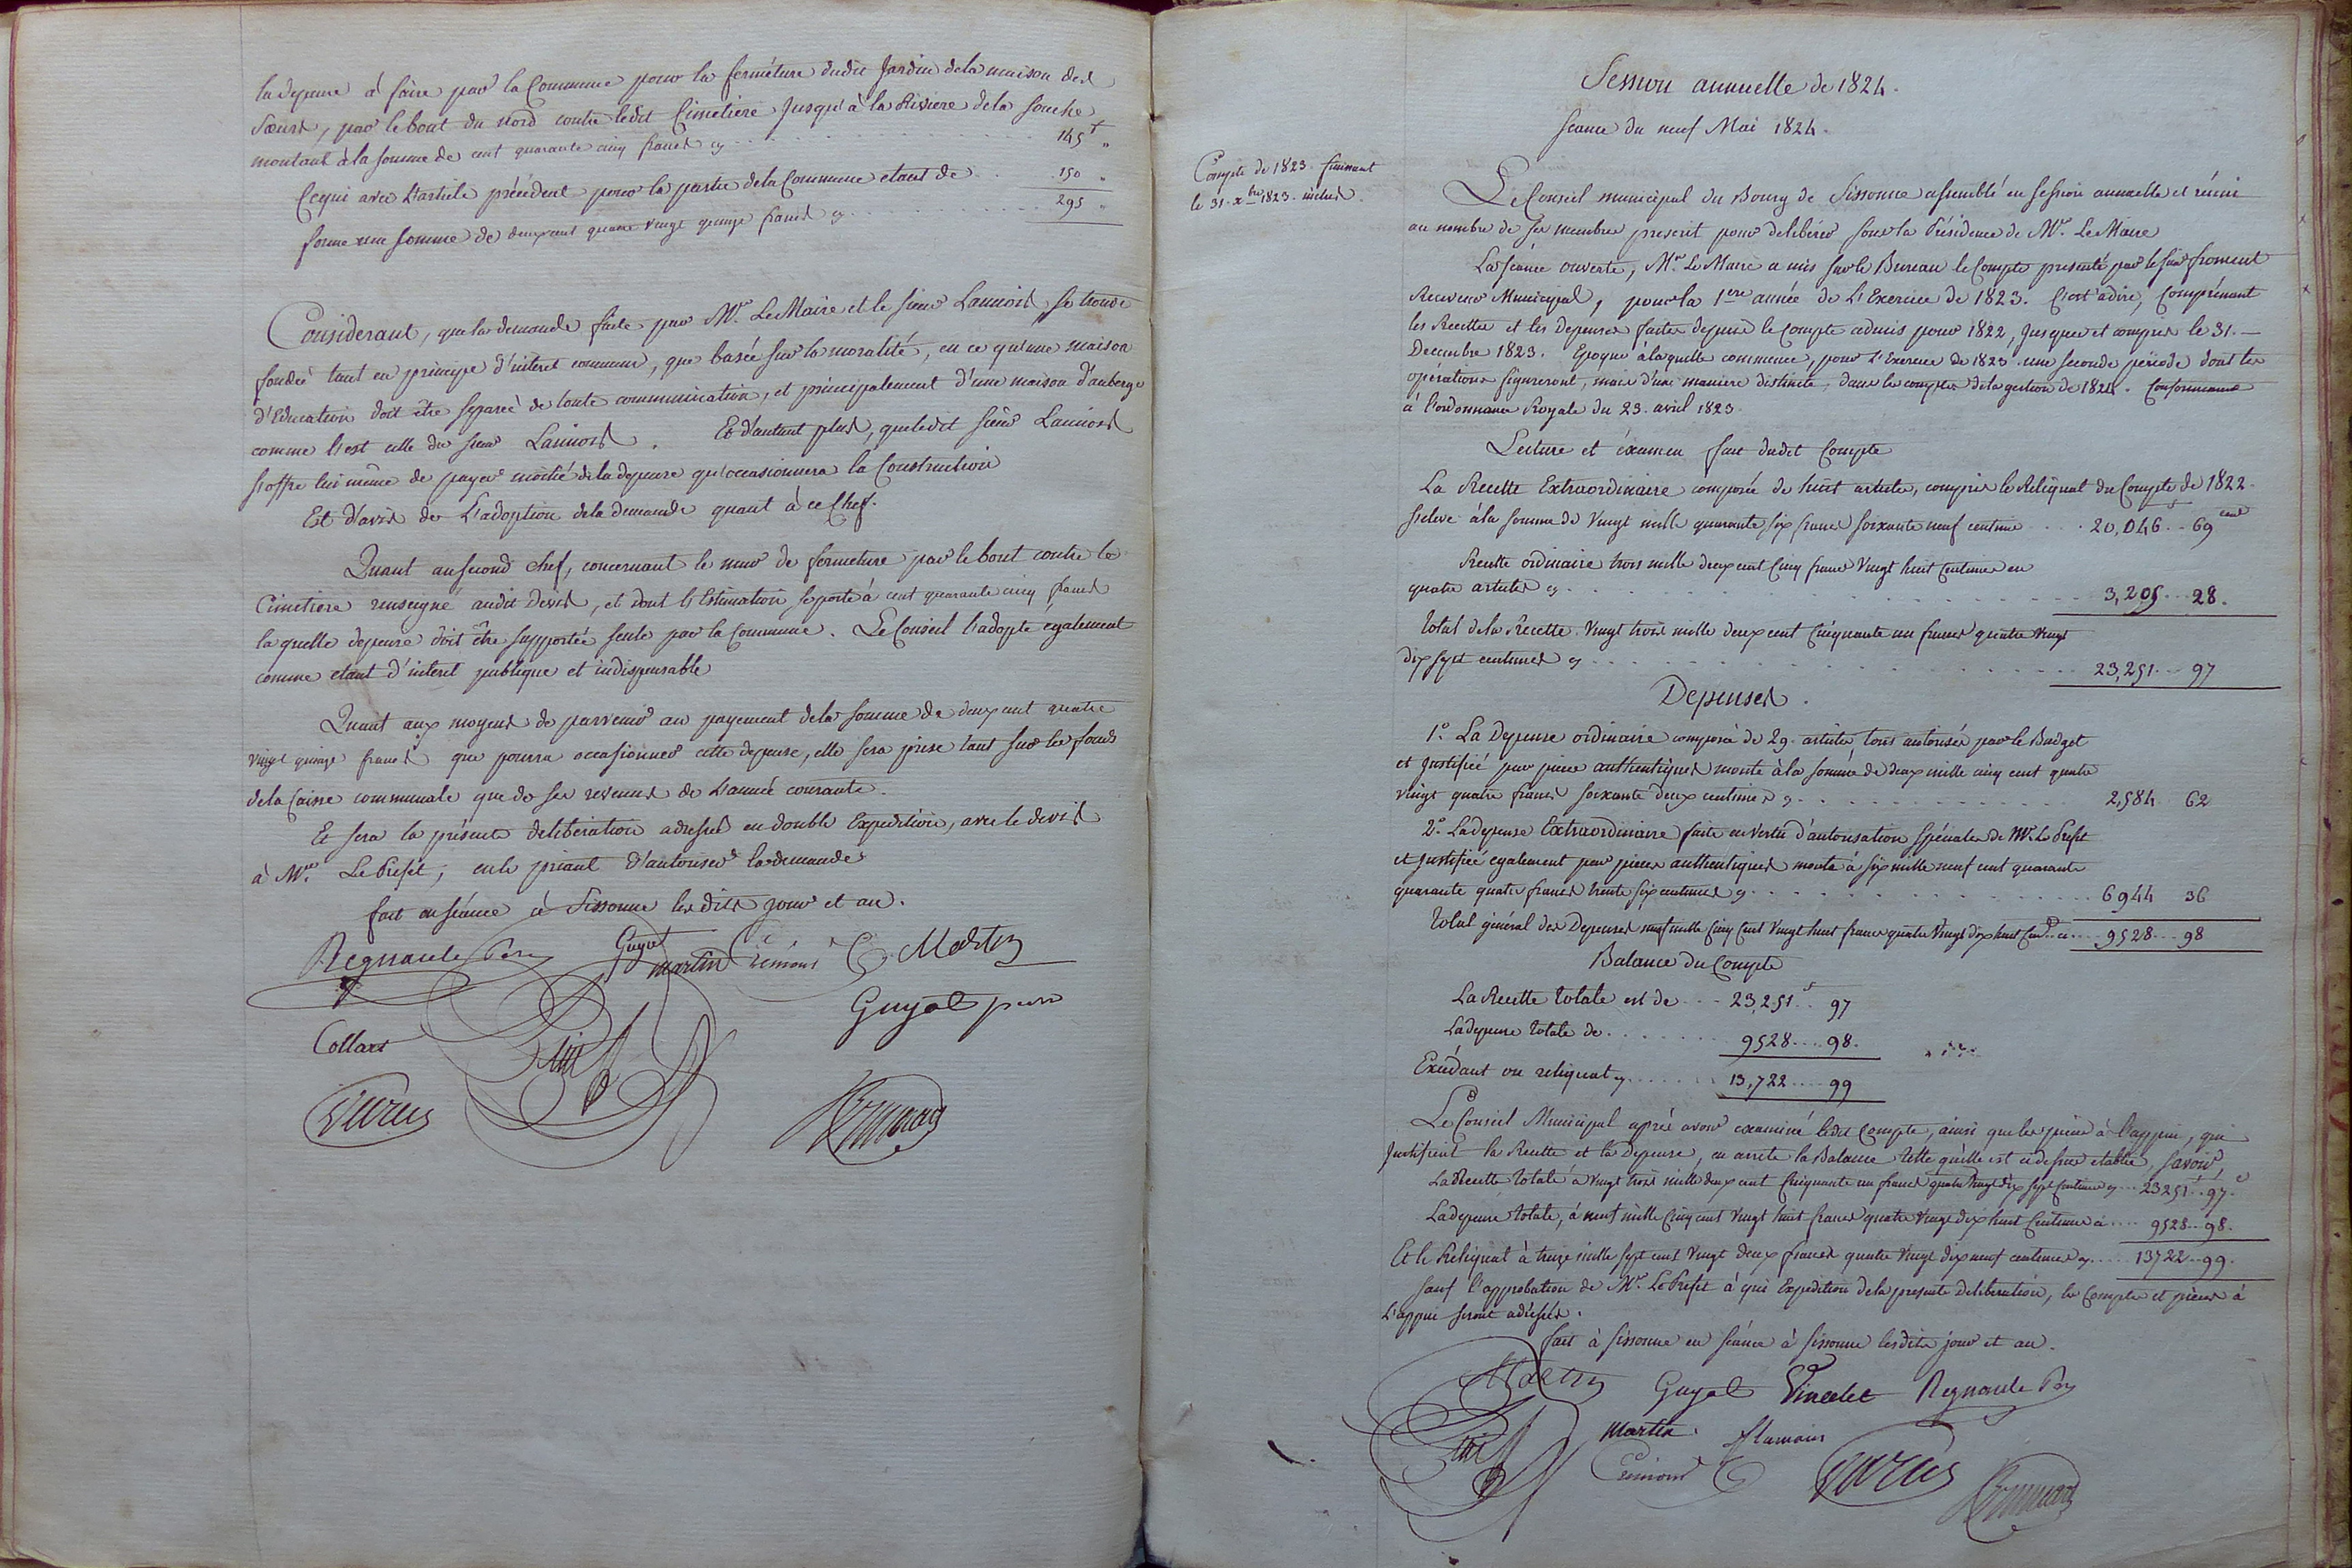 la depense à faire par la Commune pour la fermeture dudit Jardin dela maison des
Sœurs, par le bout du nord contre ledit Cimetiere Jusqu'à la Riviere dela souche
montant à la somme de cent quarante cinq francs cy . . . 145 f "
Cequi avec l'article précédent pour la partie dela Commune etant de . . 150 "
forme une somme de deux cent quatre vingt quinze francs cy . . . 295 "
Considerant, que la demande faite par Mr. Le Maire et le sieur Lauriois se trouve
fondée tant en principe d'interet commun, que basée sur la moralité, en ce qu'une maison
d'Education doit être separée de toute communication, et principalement d'une maison d'auberge
comme l'est celle du sieur Lauriois. Et d'autant plus, queledit sieur Lauriois
s'offre lui même de payer moitié dela depense qu'occasionnera la Construction
Est d'avis de L'adoption dela demande quant à ce Chef.
Quant au second chef, concernant le mur de fermeture par le bout contre le
Cimetiere renseigné audit Devis, et dont l'Estimation se porte à cent quarante cinq francs
la quelle depense doit être supportée seule par la Commune. Le Conseil l'adopte également
comme etant d'interet publique et indispensable
Quant aux moyens de parvenir au payement dela somme de deux cent quatre
vingt quinze francs que pourra occasionner cette depense, elle sera prise tant sur les fonds
dela Caisse communale que de ses revenus de L'année courante.
Et sera la présente deliberation adressée en double Expedition, avec le devis
à Mr. Le Prefet, en le priant d'autoriser la demande
fait en séance à Sissonne les dits jour et an.
Regnault Guyot
martin Cremont Martin
Guyot pere
Collart
Session annuelle de 1824.
Seance du neuf Mai 1824.
Compte de 1823. finissant
le 31. Xbre 1823. inclus.
Le Conseil municipal du Bourg de Sissonne assemblé en session annuelle et réuni
au nombre de ses membres prescrit pour deliberer sous la Présidence de Mr. Le Maire
La séance ouverte, Mr. Le Maire a mis sur le Bureau le Compte presenté par le sieur froment
Receveur Municipal, pour la 1ere année de L'Exercice de 1823. C'est adire, Comprénant
les Recettes et les Depenses faites depuis le Compte admis pour 1822, Jusques et compris le 31.
Decembre 1823. Epoque à laquelle commence, pour l'Exercice de 1823 une seconde période dont les
opérations figureront, mais d'une maniere distincte, dans les comptes dela gestion de 1824. Conformement
à l'ordonnance Royale du 23. avril 1823.
Lecture et éxamen fait dudit Compte
La Recette Extraordinaire composée de huit articles, compris le Reliquat du Compte de 1822.
s'eleve à la somme de Vingt mille quarante six francs soixante neuf centimes . . . 20,046 f . 69 cent
Recette ordinaire trois mille deux cent Cinq francs Vingt huit Centimes en
quatre articles cy . . . 3,205 . . 28.
Total dela Recette. Vingt trois mille deux cent Cinquante un francs quatre vingt
dix sept centimes cy . . . 23,251 . . 97
Depenses.
1°. La Depense ordinaire composée de 29. articles tous autorisés par le Budget
et Justifiée par pieces authentiques monte à la somme de deux mille cinq cent quatre
vingt quatre francs soixante deux centimes cy . . . 2,584 62
2°. La depense Extraordinaire faite en vertu d'autorisation Speciales de Mr. Le Prefet
et Justifiée egalement par pieces authentiques monte à six mille neuf cent quarante
quarante quatre francs trente six centimes cy . . . 6944 36
Total général des Depenses neuf mille Cinq Cent Vingt huit francs quatre Vingt dix huit Cent. ci . . 9528 . . 98
Balance du Compte
La Recette totale est de . . . 23,251 f . . 97
La depense totale de . . . 9528 . . . 98.
Excédant ou reliquat cy . . . 13,722 . . . 99
Le Conseil Municipal après avoir examiné ledit Compte, ainsi que les pieces à l'appui, qui
Justifient la Recette et la Depense, en arrete la Balance telle qu'elle est ci dessus etablie, Savoir,
La Recette totale à vingt trois mille deux cent Cinquante un francs quatre Vingt dix sept Centimes cy . . . 23251 f . . 97 c
La depense totale, à neuf mille Cinq cent Vingt huit francs quatre Vingt dix huit Centimes ci . . . 9528 . . 98.
Et le Reliquat à treize mille sept cent Vingt deux francs quatre Vingt dix neuf centimes cy . . . 13722 . . 99.
Sauf l'approbation de Mr. Le Prefet à qui Expedition dela presente Deliberation, le Compte et pieces à
L'appui seront adressés.
fait à Sissonne en séance à Sissonne lesdits jour et an.
Martin Guyot Vincelet Regnault
Martin. flamain
Cremont